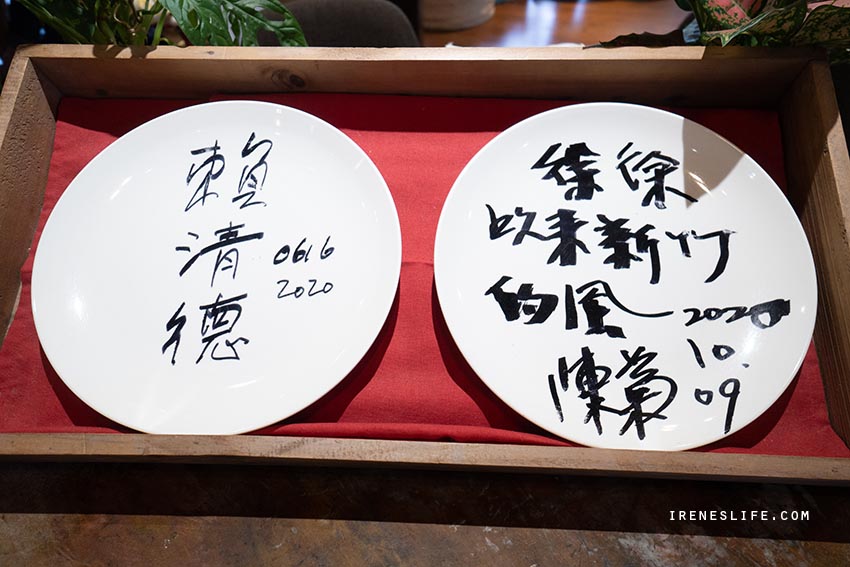 賴
清
德
0616
2020
徐徐
吹來新竹
的風
2020
10.
09
陳菊
IRENESLIFE.COM